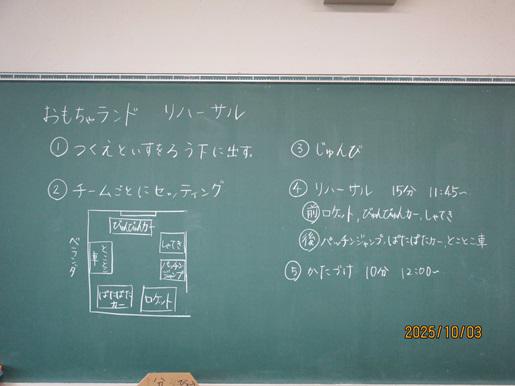 おもちゃランド　リハーサル
① つくえといすをろう下に出す。
② チームごとにセッティング
ベランダ
びゅんびゅんカー
しゃてき
とことこ車
パッチンジャンプ
ぱたぱたカー
ロケット
③ じゅんび
④ リハーサル　15分　11:45～
前 ロケット,びゅんびゅんカー,しゃてき
後 パッチンジャンプ,ぱたぱたカー,とことこ車
⑤ かたづけ　10分　12:00～
2025/10/03